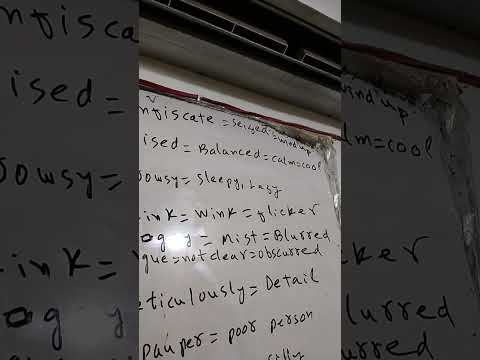 nfiscate = seized = windup
ised = Balanced = calm = cool
owsy = sleepy, lazy
ink = wink = flicker
og y = Mist = Blurred
gue = not clear = obscurred
eticulously = Detail
pauper = poor person